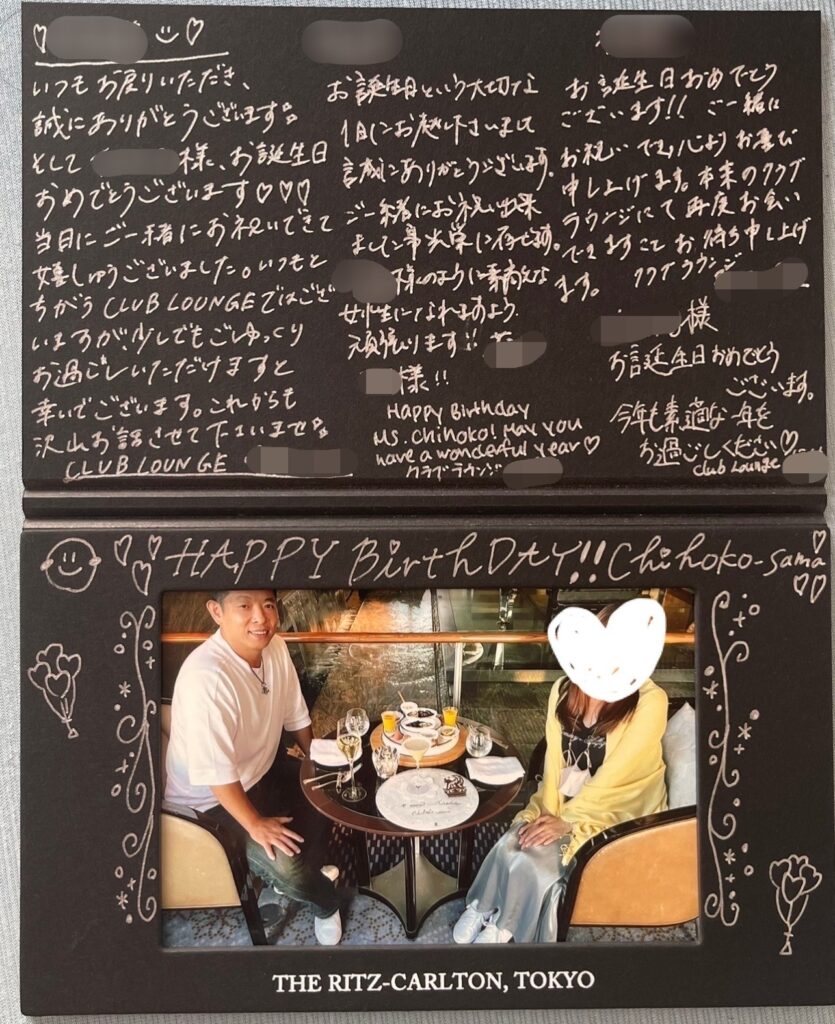 いつもお戻りいただき、
誠にありがとうございます。
そして 様、お誕生日
おめでとうございます♡♡♡
当日にご一緒にお祝いできて
嬉しゅうございました。いつもと
ちがう CLUB LOUNGEではござ
いますが、少しでもごゆっくり
お過ごしいただけますと
幸いでございます。これからも
沢山お話させて下さいませ。
CLUB LOUNGE
お誕生日という大切な
1日にお越し下さいまして
誠にありがとうございます。
ご一緒にお祝い出来
ました事光栄に存じます。
様のように素敵な
女性になれますよう
頑張ります!!
様!!
Happy Birthday
Ms. Chihoko! May you
have a wonderful year♡
クラブラウンジ
お誕生日おめでとう
ございます!! ご一緒に
お祝いでき、心よりお喜び
申し上げます。本来のクラブ
ラウンジにて再度お会い
できますことお待ち申し上げ
ます。 クラブラウンジ
様
お誕生日おめでとう
ございます。
今年も素適な一年を
お過ごしください♡
Club Lounge
HAPPY BirthDAY!! Chihoko-sama
THE RITZ-CARLTON, TOKYO